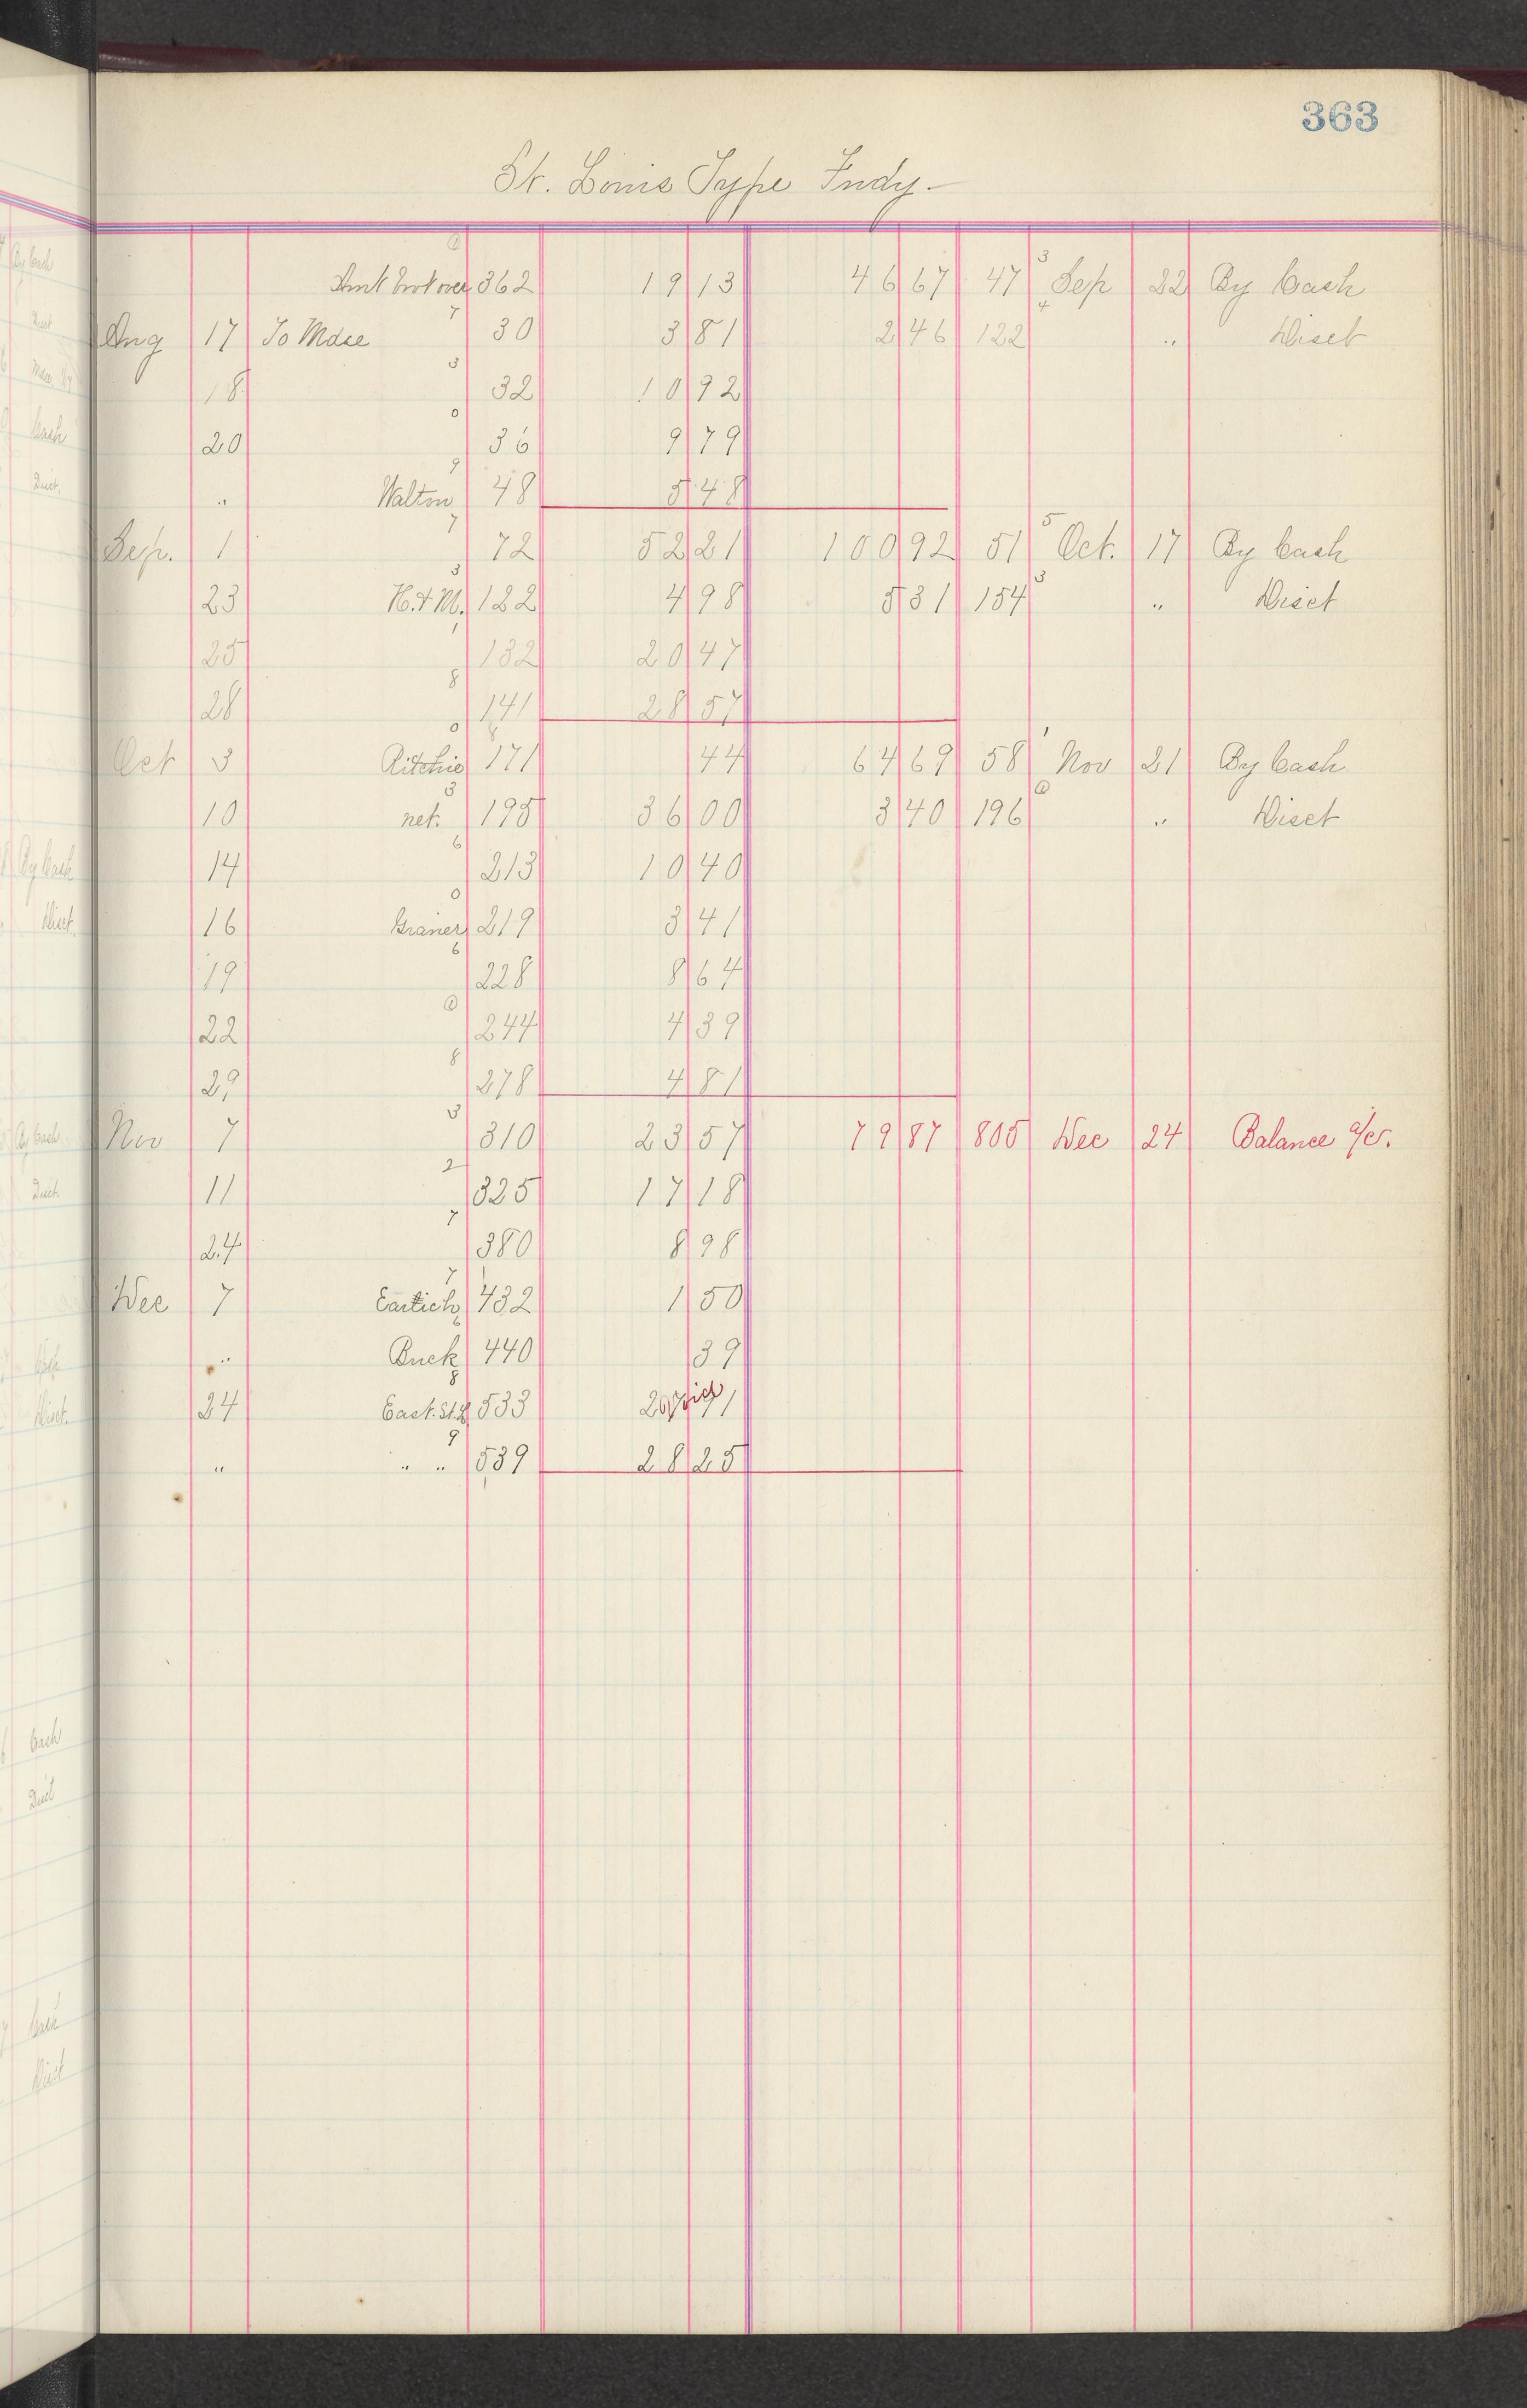 363
St. Louis Type Fndy.
Amt brot over 362 19 13 46 67 47 Sep 22 By Cash
Aug 17 To Mdse 30 3 81 2 46 122 " Disct
18 32 10 92
20 36 9 79
" Walton 48 5 48
Sep. 1 72 52 21 100 92 51 Oct. 17 By Cash
23 H. & M. 122 4 98 5 31 154 " Disct
25 132 20 47
28 141 28 57
Oct 3 Ritchie 171 44 64 69 58 Nov 21 By Cash
10 net. 195 36 00 3 40 196 " Disct
14 213 10 40
16 Graner 219 3 41
19 228 8 64
22 244 4 39
29 278 4 81
Nov 7 310 23 57 79 87 805 Dec 24 Balance a/c.
11 325 17 18
24 380 8 98
Dec 7 432 1 50
" Buck 440 39
24 East. St. L 533
" " " 539 28 25